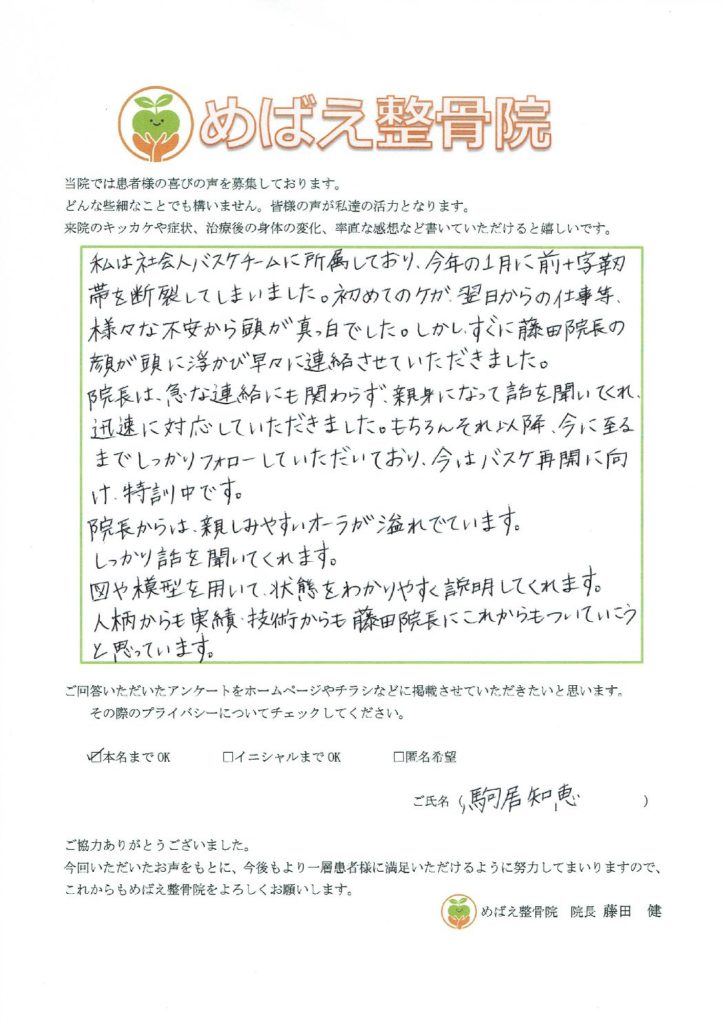 めばえ整骨院
当院では患者様の喜びの声を募集しております。
どんな些細なことでも構いません。皆様の声が私達の活力となります。
来院のキッカケや症状、治療後の身体の変化、率直な感想など書いていただけると嬉しいです。
私は社会人バスケチームに所属しており、今年の1月に前十字靭
帯を断裂してしまいました。初めてのケガ、翌日からの仕事等、
様々な不安から頭が真っ白でした。しかし、すぐに藤田院長の
顔が頭に浮かび早々に連絡させていただきました。
院長は、急な連絡にも関わらず、親身になって話を聞いてくれ、
迅速に対応していただきました。もちろんそれ以降、今に至る
までしっかりフォローしていただいており、今はバスケ再開に向
け、特訓中です。
院長からは、親しみやすいオーラが溢れでています。
しっかり話を聞いてくれます。
図や模型を用いて、状態をわかりやすく説明してくれます。
人柄からも実績・技術からも藤田院長にこれからもついていこう
と思っています。
ご回答いただいたアンケートをホームページやチラシなどに掲載させていただきたいと思います。
その際のプライバシーについてチェックしてください。
☑本名までOK □イニシャルまでOK □匿名希望
ご氏名（駒居知恵）
ご協力ありがとうございました。
今回いただいたお声をもとに、今後もより一層患者様に満足いただけるように努力してまいりますので、
これからもめばえ整骨院をよろしくお願いします。
めばえ整骨院 院長 藤田 健